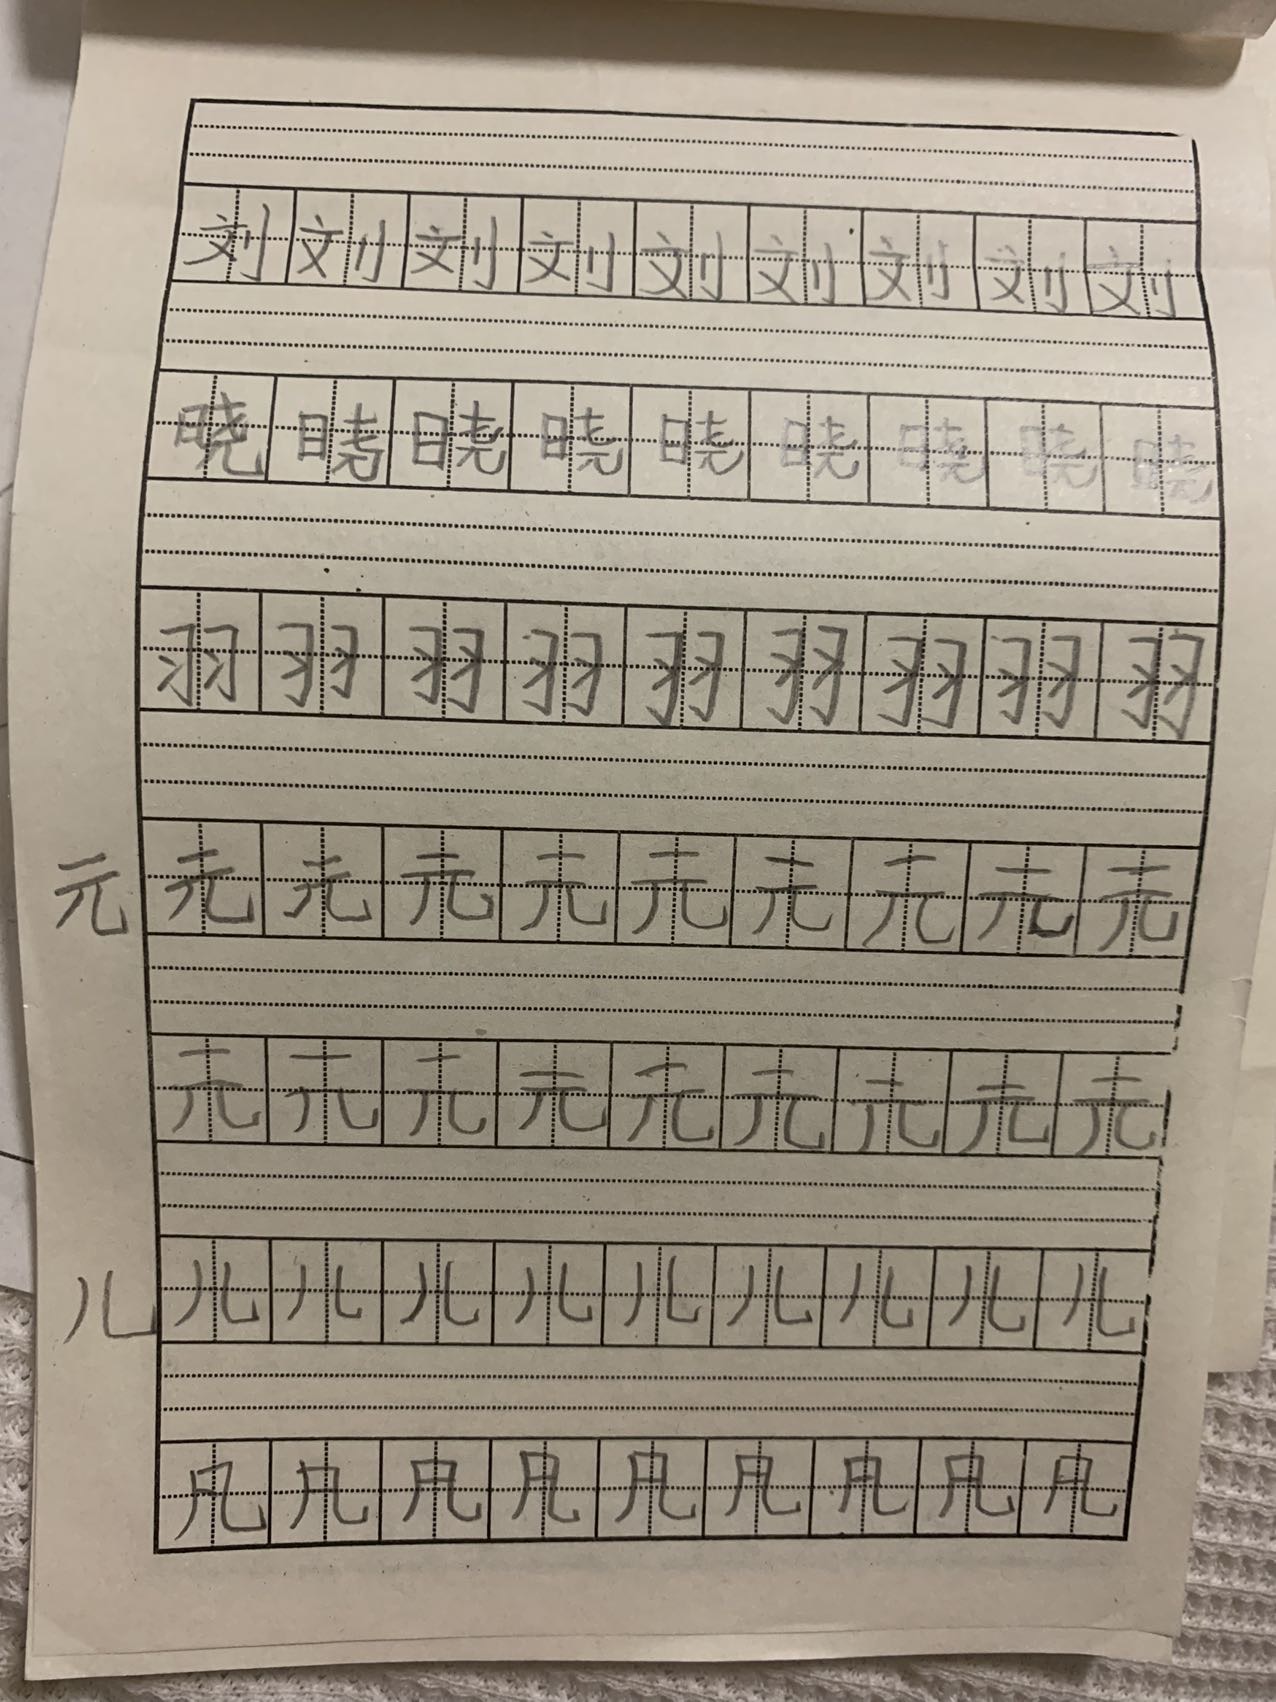 刘刘刘刘刘刘刘刘刘
晓晓晓晓晓晓晓晓晓
羽羽羽羽羽羽羽羽羽
元元元元元元元元元元
元元元元元元元元元
儿儿儿儿儿儿儿儿儿儿
凡凡凡凡凡凡凡凡凡